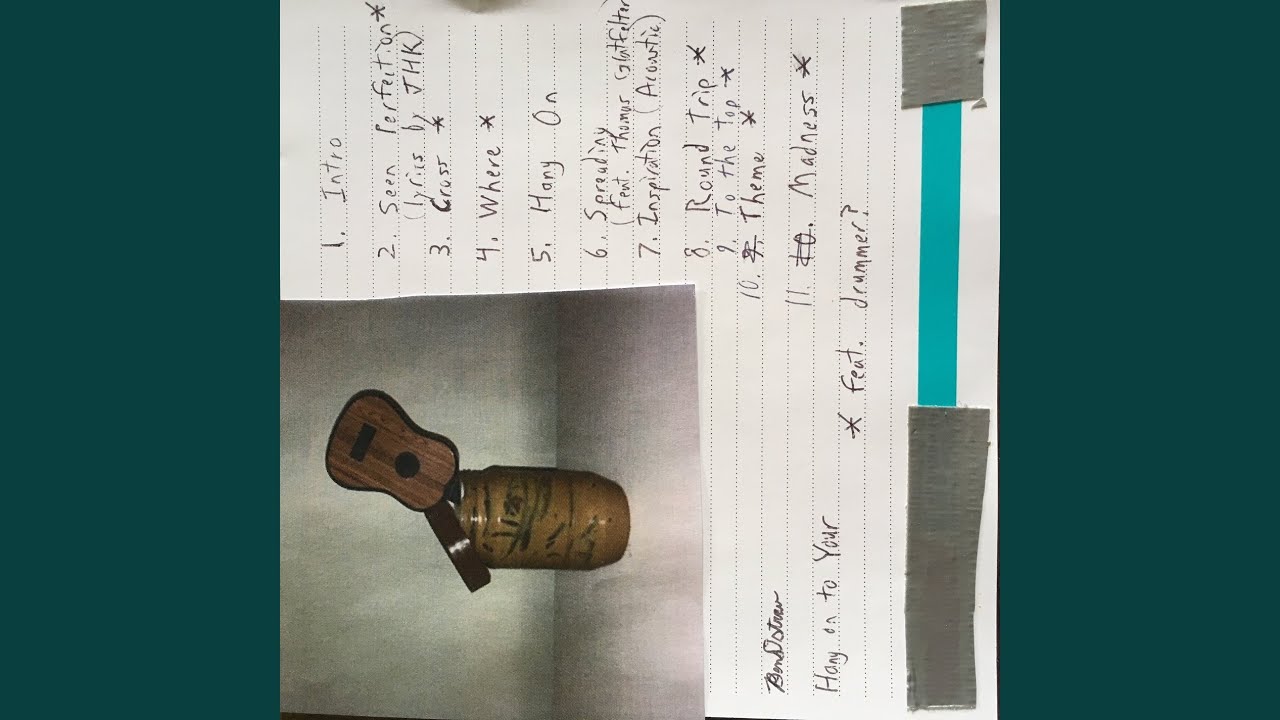 1. Intro
2. Seen Perfection *
(lyrics by JHK)
3. Cross *
4. Where *
5. Hang On
6. Spreading
(Feat. Thomas Glatfelter)
7. Inspiration (Acoustic)
8. Round Trip *
9. To the top *
10. Theme *
11. Madness *
* Feat. drummer?
Hang on to Your